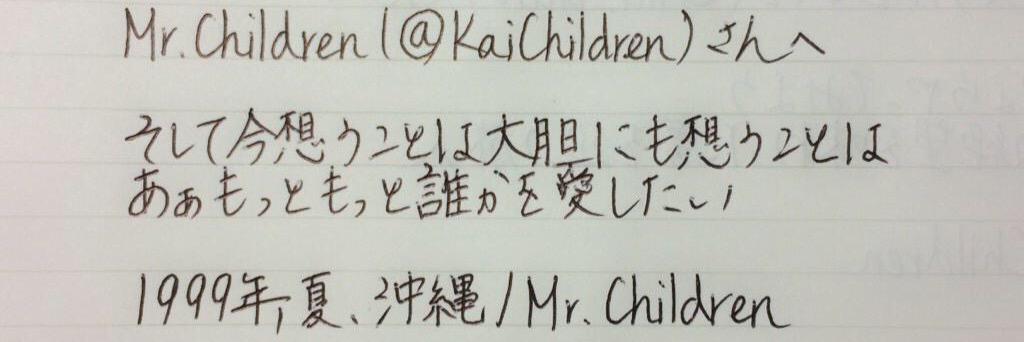 Mr.Children(@KaiChildren)さんへ
そして今想うことは大胆にも想うことは
あぁもっともっと誰かを愛したい
1999年,夏、沖縄/Mr.Children